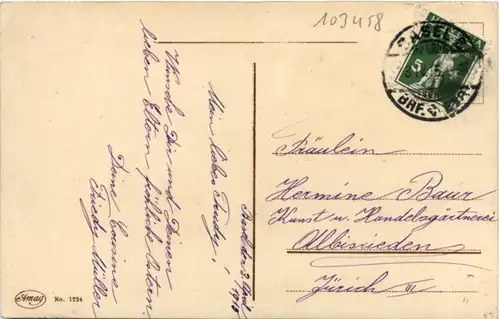 103458
BASEL 2
BRF. EXP.
5
Basel den 3. April 1915
Mein liebes Trudy!
Wünsche Dir und Deinen
lieben Eltern fröhliche Ostern.
Deine Cousine
Frieda Müller
Fräulein
Hermine Baur
Kunst u. Handelsgärtnerei
Albisrieden
Zürich III
Amag No. 1234